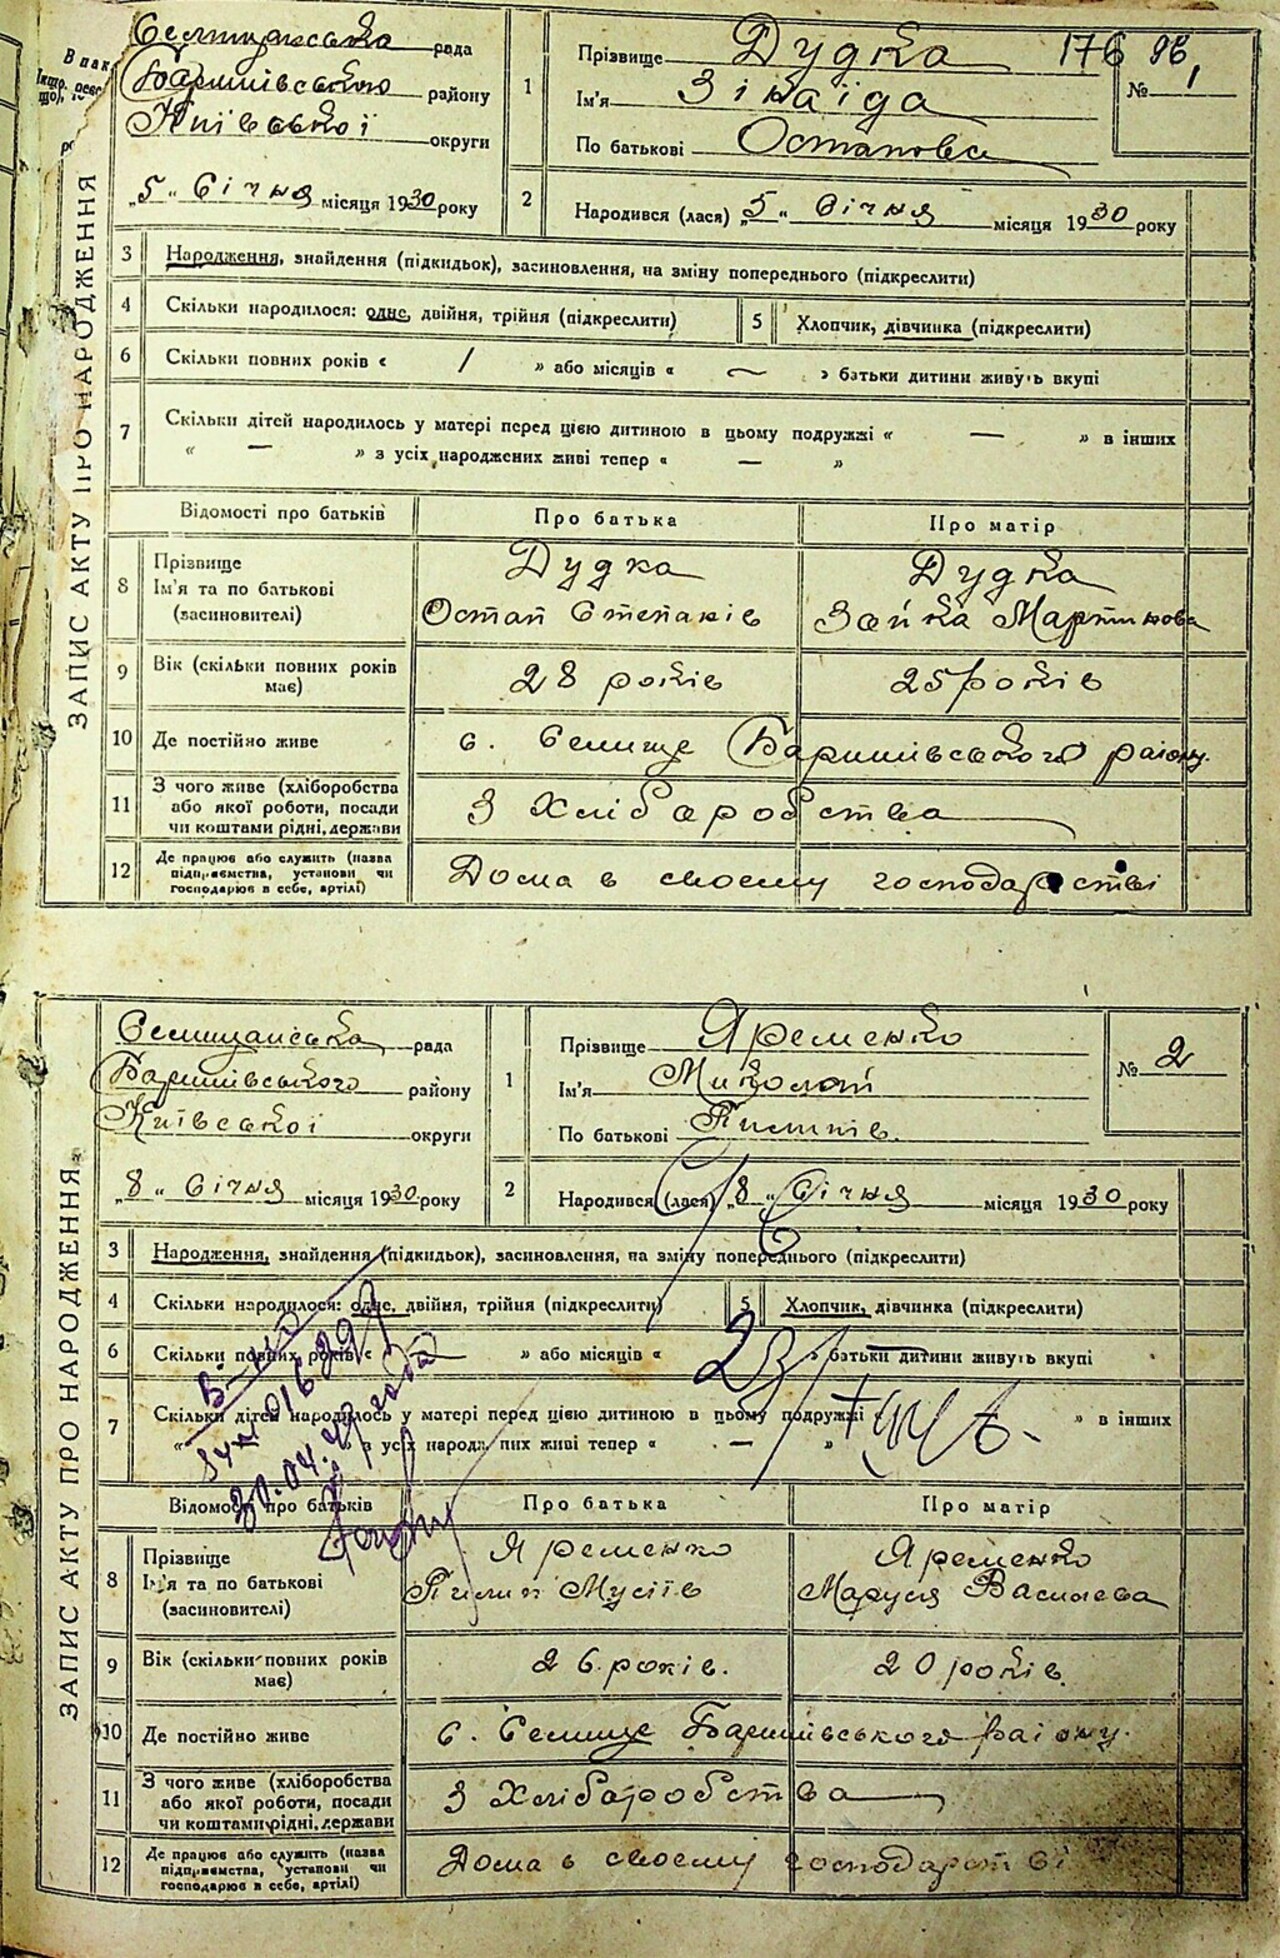 Селищанська рада
Баришівського району
Київської округи
„5" Січня місяця 1930 року
1
Прізвище Дудка
Ім'я Зінаїда
По батькові Остапова
176 98
№ 1
2
Народився (лася) „5" Січня місяця 1930 року
ЗАПИС АКТУ ПРО НАРОДЖЕННЯ
3 Народження, знайдення (підкидьок), засиновлення, на зміну попереднього (підкреслити)
4 Скільки народилося: одне, двійня, трійня (підкреслити) 5 Хлопчик, дівчинка (підкреслити)
6 Скільки повних років « / » або місяців « ~ » батьки дитини живуть вкупі
7 Скільки дітей народилось у матері перед цією дитиною в цьому подружжі « — » в інших
« — » з усіх народжених живі тепер « — »
Відомості про батьків Про батька Про матір
8 Прізвище Дудка Дудка
Ім'я та по батькові Остап Степанів Заўка Мартинова
(засиновителі)
9 Вік (скільки повних років має) 28 років 25 років
10 Де постійно живе с. Селище Баришівського району.
11 З чого живе (хліборобства
або якої роботи, посади З Хліборобства
чи коштами рідні, держави
12 Де працює або служить (назва
підприємства, установи чи Дома в своєму господарстві
господарює в себе, артілі)
Селищанська рада
Баришівського району
Київської округи
„8" Січня місяця 1930 року
1
Прізвище Яременко
Ім'я Миколай
По батькові Пилипів.
№ 2
2
Народився (лася) „8" Січня місяця 1930 року
ЗАПИС АКТУ ПРО НАРОДЖЕННЯ
3 Народження, знайдення (підкидьок), засиновлення, на зміну попереднього (підкреслити)
4 Скільки народилося: одне, двійня, трійня (підкреслити) 5 Хлопчик, дівчинка (підкреслити)
6 Скільки повних років « — » або місяців « — » батьки дитини живуть вкупі
7 Скільки дітей народилось у матері перед цією дитиною в цьому подружжі » в інших
« » з усіх народжених живі тепер « — »
Відомості про батьків Про батька Про матір
8 Прізвище Яременко Яременко
Ім'я та по батькові Пилип Мусіїв Маруся Василева
(засиновителі)
9 Вік (скільки повних років має) 26 років. 20 років.
10 Де постійно живе с. Селище Баришівського Району.
11 З чого живе (хліборобства
або якої роботи, посади З Хліборобства
чи коштами рідні, держави
12 Де працює або служить (назва
підприємства, установи чи Дома в своєму господарстві
господарює в себе, артілі)